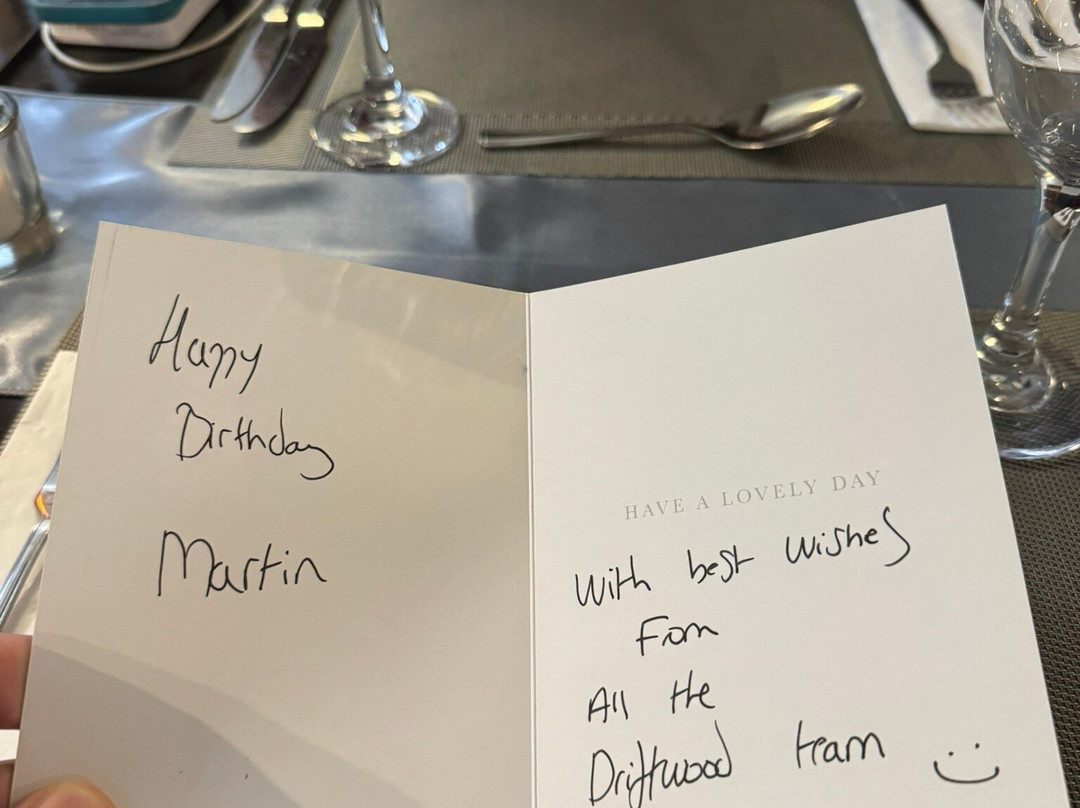 Happy
Birthday
Martin
HAVE A LOVELY DAY
With best wishes
From
All the
Driftwood team